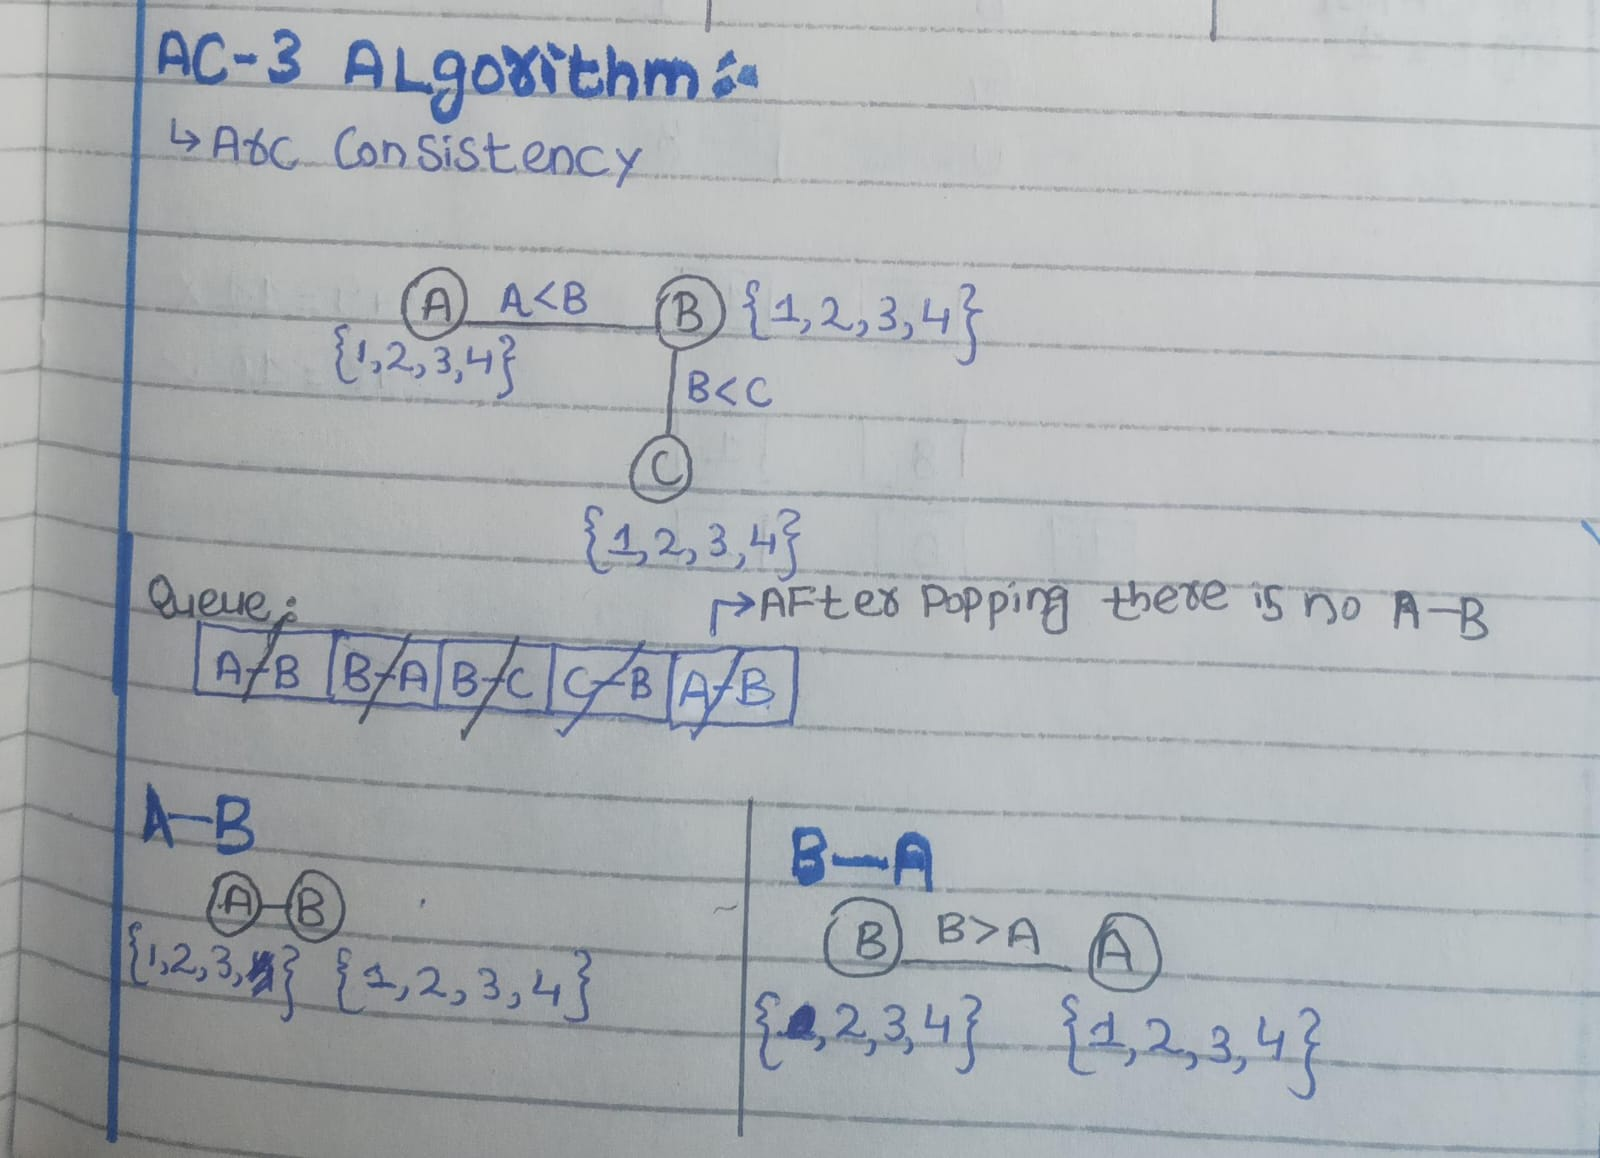 AC-3 ALgorithm:-
↳ Arc Consistency
A A<B B {1,2,3,4}
{1,2,3,4}
B<C
C
{1,2,3,4}
Queue:
↱→AFter Popping there is no A-B
A-B B-A B-C C-B A-B
A-B
A-B
{1,2,3,4} {1,2,3,4}
B-A
B B>A A
{1,2,3,4} {1,2,3,4}